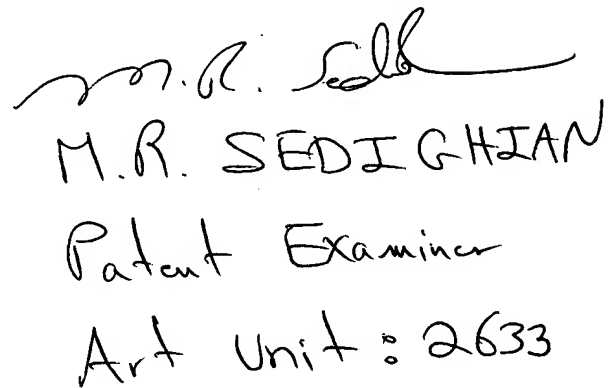 M.R. SEDIGHIAN
Patent Examiner
Art Unit : 2633